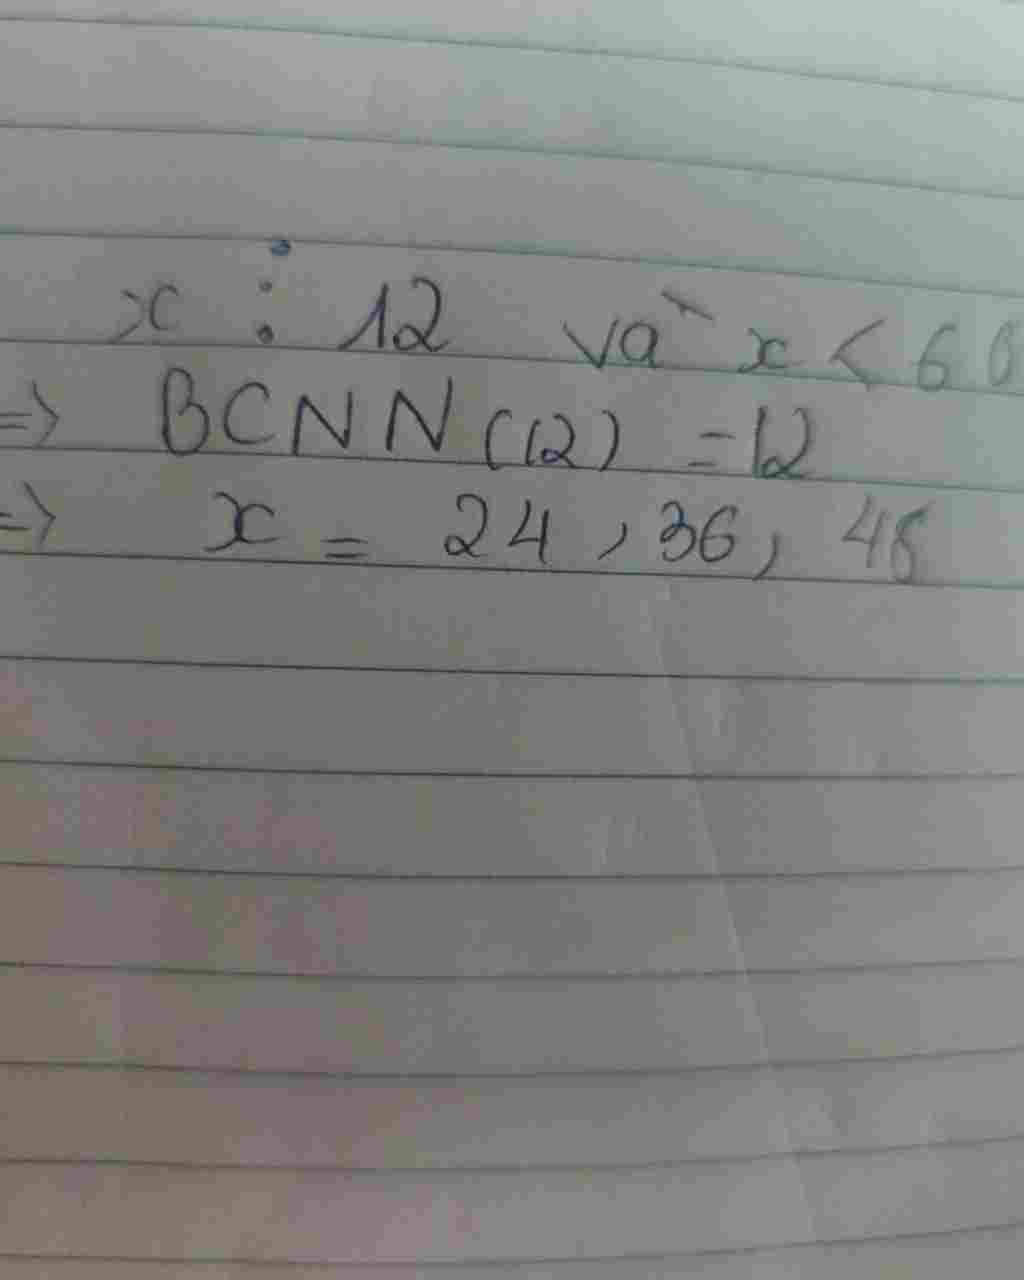 x ⋮ 12 và x < 60
=> BCNN (12) = 12
=> x = 24, 36, 48